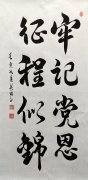 牢记党恩
征程似锦